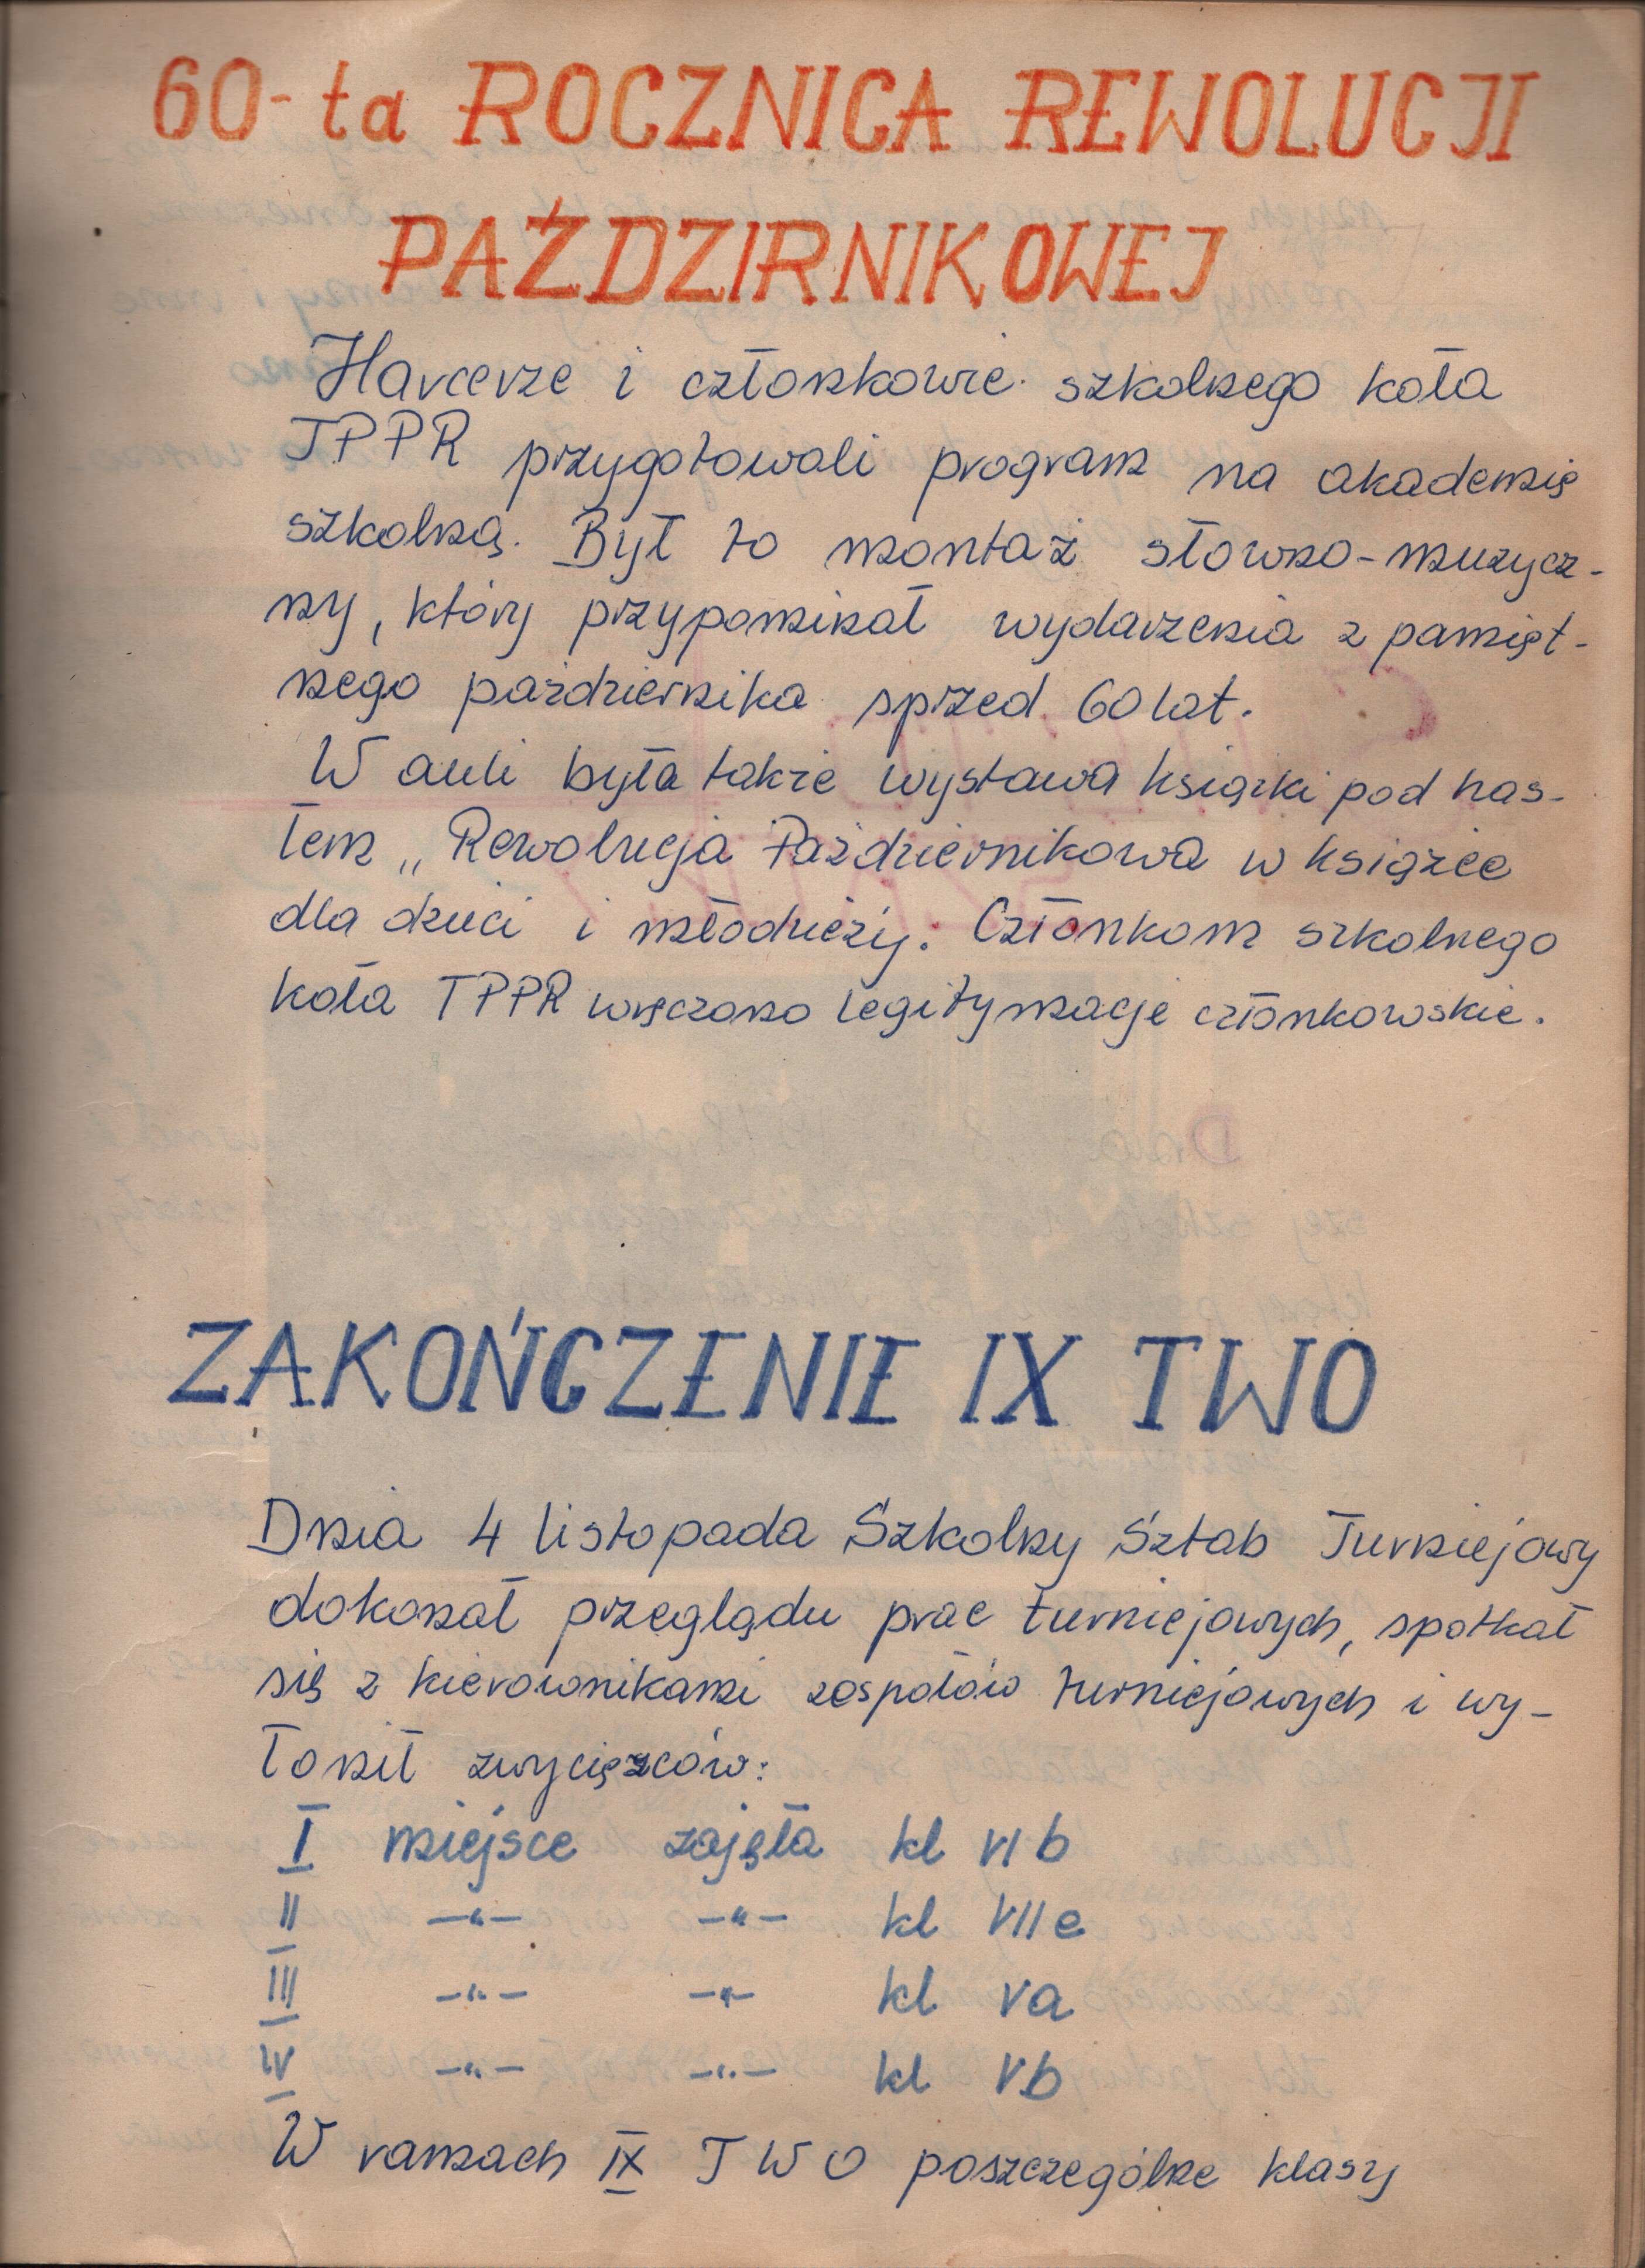 60-ta ROCZNICA REWOLUCJI
PAŹDZIRNIKOWEJ
Harcerze i członkowie szkolnego koła
TPPR przygotowali program na akademię
szkolną. Był to montaż słowno-muzycz-
ny, który przypominał wydarzenia z pamięt-
nego października sprzed 60 lat.
W auli była także wystawa książki pod has-
łem „Rewolucja Październikowa w książce
dla dzieci i młodzieży. Członkom szkolnego
koła TPPR wręczono legitymacje członkowskie.
ZAKOŃCZENIE IX TWO
Dnia 4 listopada Szkolny Sztab Turniejowy
dokonał przeglądu prac turniejowych, spotkał
się z kierownikami zespołów turniejowych i wy-
łonił zwycięzców:
I miejsce zajęła kl VI b
II —"— —"— kl VII e
III —"— —"— kl V a
IV —"— —"— kl V b
W ramach IX TWO poszczególne klasy